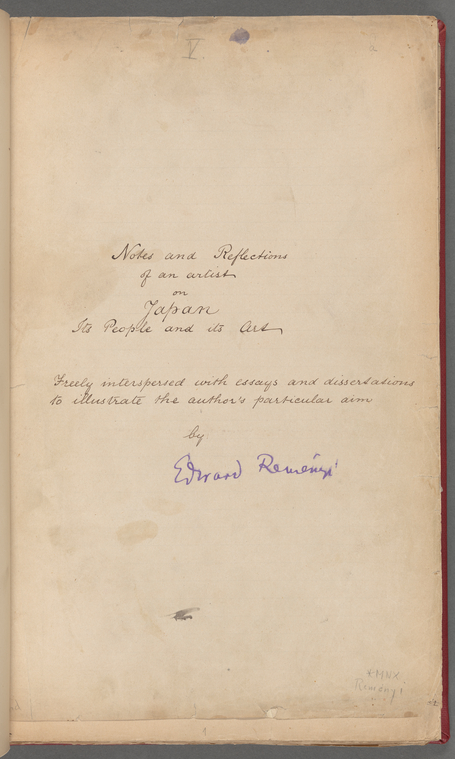 V.
Notes and Reflections
of an artist
on
Japan
Its People and its Art
Freely interspersed with essays and dissertations
to illustrate the author's particular aim
by
Edward Reményi
*MNX
Remenyi